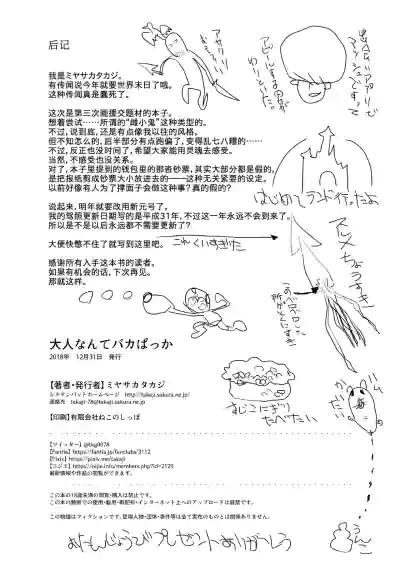 后记
我是ミヤサカタカジ。
有传闻说今年就要世界末日了哦。
这种传闻真是蠢死了。
这次是第三次画援交题材的本子。
想着尝试……所谓的“雌小鬼”这种类型的。
不过，说到底，还是有点像我以往的风格。
但不知怎么的，后半部分有点跑偏了，变得乱七八糟的……
不过，反正也没时间了，希望大家能用灵魂去感受。
当然，不感受也没关系。
对了，本子里提到的钱包里的那沓钞票，其实大部分都是假的，
是把报纸剪成钞票大小放进去的——这种无关紧要的设定。
以前好像有人为了撑面子会做这种事？真的假的？
说起来，明年就要改用新元号了。
我的驾照更新日期写的是平成31年，不过这一年永远不会到来了。
所以是不是以后永远都不需要更新了？
大便快憋不住了就写到这里吧。
感谢所有入手这本书的读者。
如果有机会的话，下次再见。
那就这样。
大人なんてバカばっか
2018年 12月31日 発行
【著者・発行者】ミヤサカタカジ
シエマンバットホームページ http://takaji.sakura.ne.jp/
連絡先 takaji-78@takaji.sakura.ne.jp
【印刷】有限会社ねこのしっぽ
【ツイッター】@tkg0078
【Fantia】https://fantia.jp/fanclubs/3112
【Pixiv】https://pixiv.me/takaji
【ニジエ】https://nijie.info/members.php?id=2129
最新情報や作品の閲覧ができます。
この本の18歳未満の閲覧・購入は禁止です。
この本の無断での使用・転用・再配布・インターネット上へのアップロードは厳禁です。
この物語はフィクションです。登場人物・団体・事件等は全て実在のものとは関係ありません。
はじめてラント行ったよ
これくいすぎた
アニメちょうすき
たべたい
うんこ
おたんじょうびプレゼントありがとう